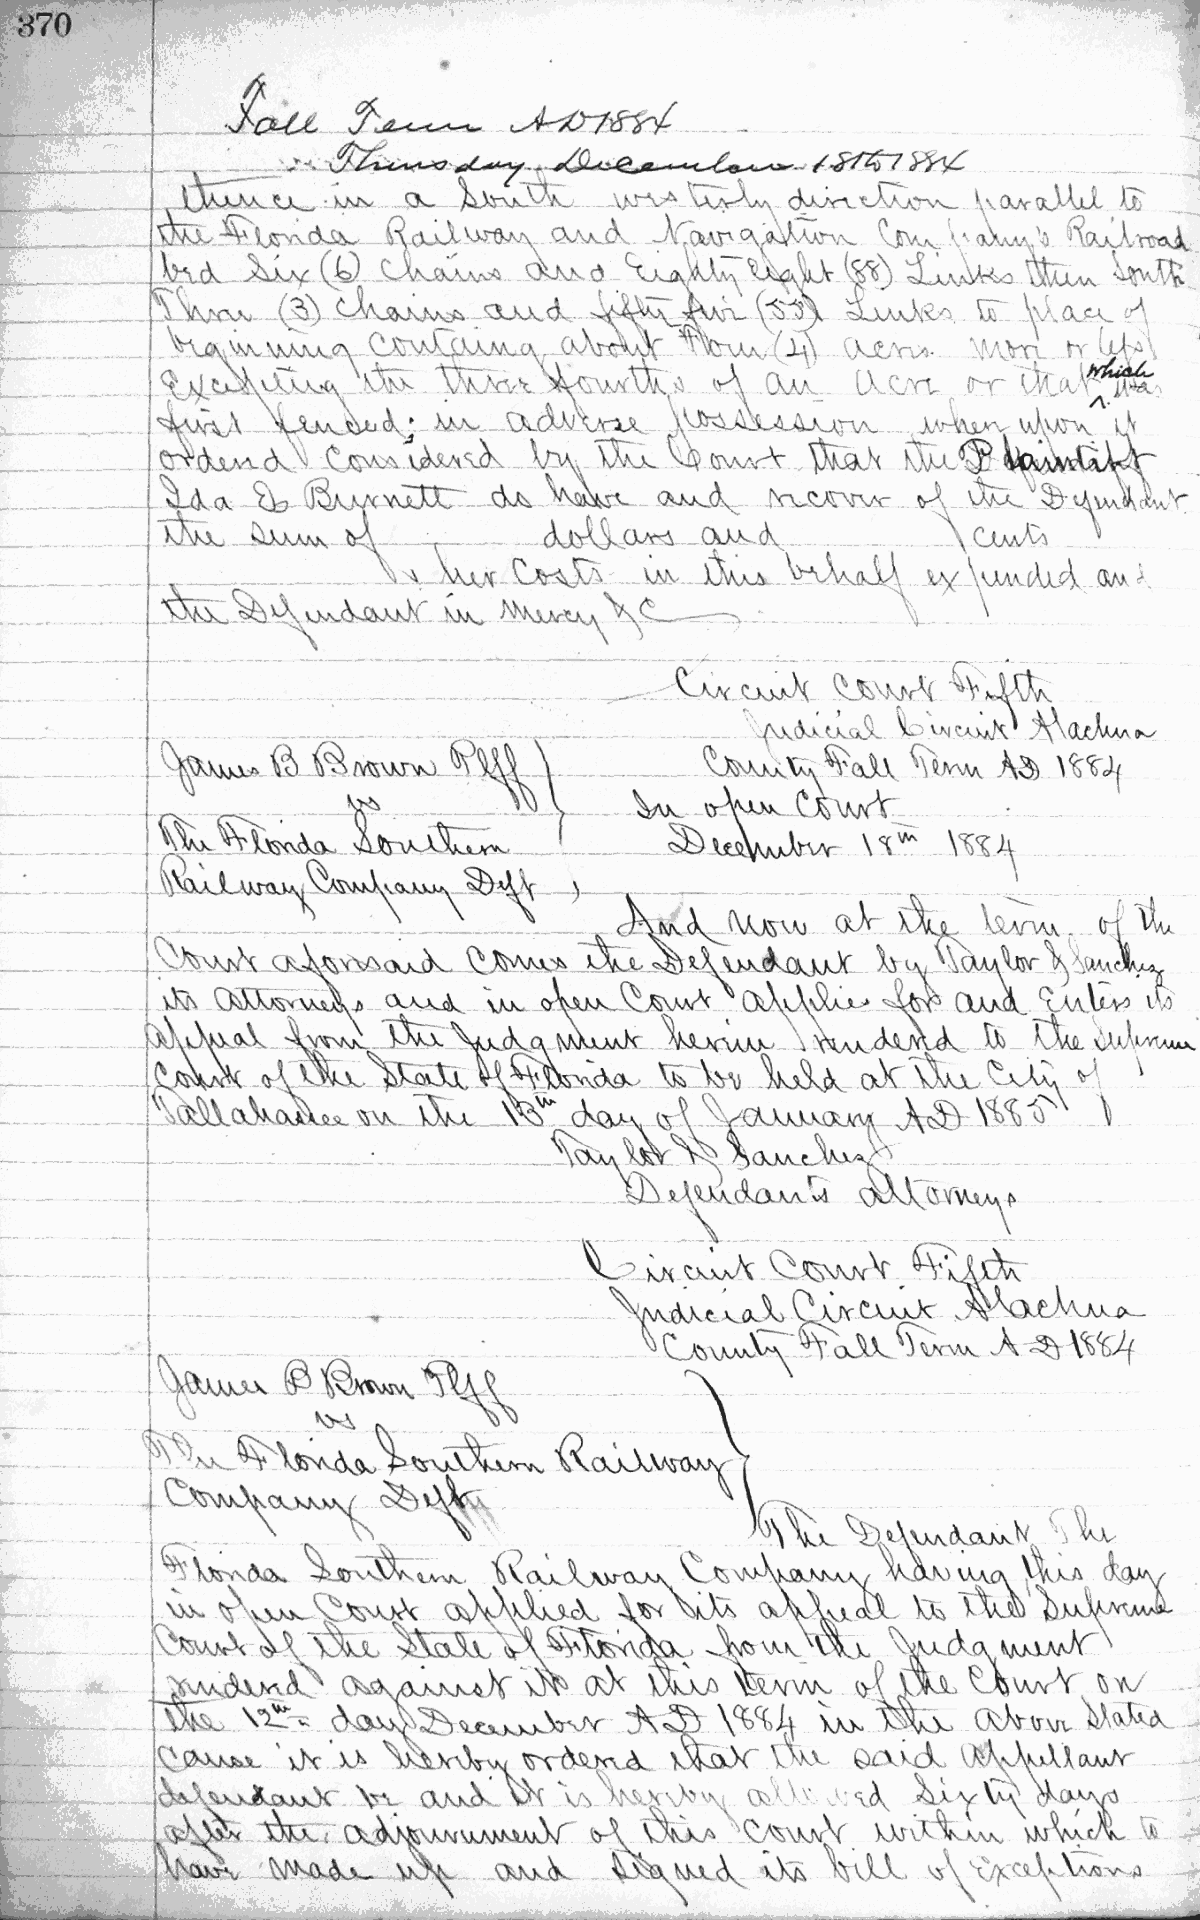 370
Fall Term AD 1884
Thursday December 18th 1884
thence in a South westerly direction parallel to
the Florida Railway and Navigation Company's Railroad
bed Six (6) Chains and Eighty eight (88) Links then South
Three (3) Chains and fifty five (55) Links to place of
beginning containg about Four (4) acres more or less
Excepting the three fourths of an acre or that which was
first fenced in adverse possession when upon it
ordered considered by the Court that the Plaintiff
Ida E Burnett do have and recover of the Defendant
the sum of dollars and cents
& her Costs in this behalf expended and
the Defendant in mercy &C
Circuit Court Fifth
Judicial Circuit Alachua
County Fall Term AD 1884
James B Brown Plff
vs
The Florida Southern
Railway Company Deft
In open Court
December 18th 1884
And now at the term of the
Court aforesaid comes the Defendant by Taylor & Sanchez
its attorneys and in open Court applies for and Enters its
appeal from the Judgment herein rendered to the Supreme
Court of the State of Florida to be held at the City of
Tallahassee on the 13th day of January AD 1885
Taylor & Sanchez
Defendants attorneys
Circuit Court Fifth
Judicial Circuit Alachua
County Fall Term A D 1884
James B Brown Plff
vs
The Florida Southern Railway
Company Deft
The Defendant The
Florida Southern Railway Company having this day
in open Court applied for its appeal to the Supreme
Court of the State of Florida from the Judgment
rendered against it at this term of the Court on
the 12th day December AD 1884 in the above stated
cause it is hereby ordered that the said appellant
defendant be and it is hereby allowed Sixty days
after the adjournment of this Court within which to
have made up and signed its bill of Exceptions